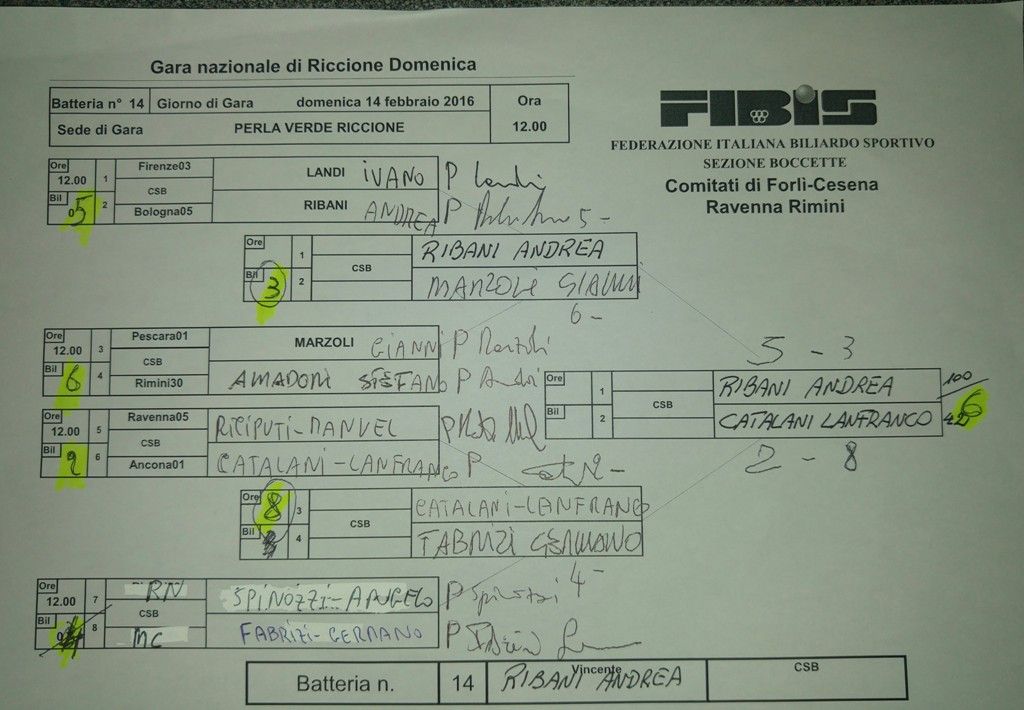 Gara nazionale di Riccione Domenica
Batteria n° 14 Giorno di Gara domenica 14 febbraio 2016 Ora
Sede di Gara PERLA VERDE RICCIONE 12.00
FIBIS
FEDERAZIONE ITALIANA BILIARDO SPORTIVO
SEZIONE BOCCETTE
Comitati di Forlì-Cesena
Ravenna Rimini
Ore 12.00 1 Firenze03 LANDI IVANO P Landi
CSB
Bil 05 2 Bologna05 RIBANI ANDREA P 5 -
Ore 1 RIBANI ANDREA
CSB
Bil 3 2 MARZOLI GIANNI
6 -
Ore 12.00 3 Pescara01 MARZOLI GIANNI P Marzoli
CSB
Bil 6 4 Rimini30 AMADORI STEFANO P
5 - 3
Ore 1 RIBANI ANDREA 100
CSB 6
Bil 2 CATALANI LANFRANCO 42
2 - 8
Ore 12.00 5 Ravenna05 RICIPUTI-MANUEL P
CSB
Bil 2 6 Ancona01 CATALANI-LANFRANCO P 2 -
Ore 8 3 CATALANI-LANFRANCO
CSB
Bil 4 FABRIZI GERMANO
4 -
Ore 12.00 7 RN SPINOZZI-ANGELO P Spinozzi
CSB
Bil 8 MC FABRIZI-GERMANO P
Batteria n. 14 Vincente RIBANI ANDREA CSB